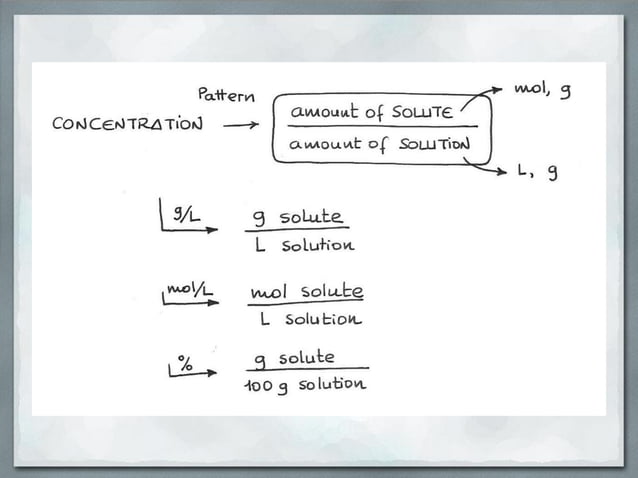 Pattern
mol, g
CONCENTRATION
amount of SOLUTE
amount of SOLUTION
L, g
g/L
g solute
L solution
mol/L
mol solute
L solution
%
g solute
100 g solution